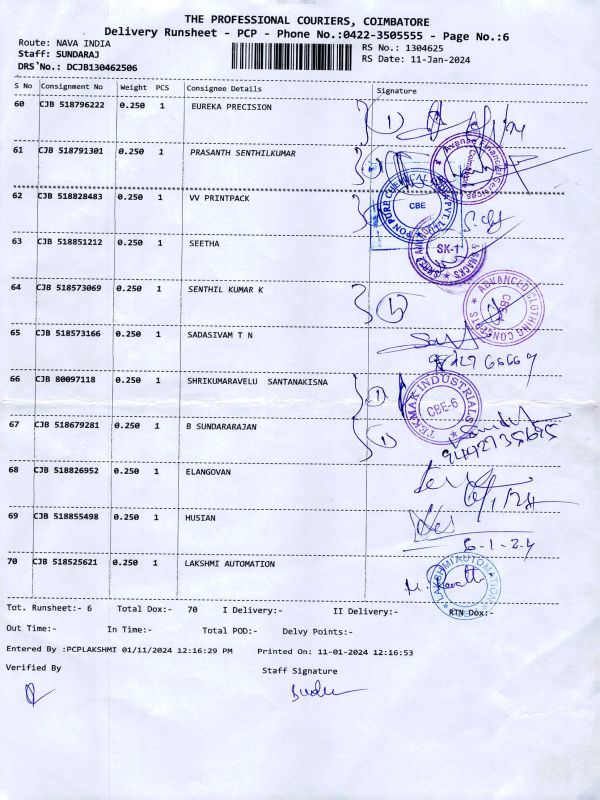 THE PROFESSIONAL COURIERS, COIMBATORE
Delivery Runsheet - PCP - Phone No.:0422-3505555 - Page No.:6
Route: NAVA INDIA
RS No.: 1304625
Staff: SUNDARAJ
RS Date: 11-Jan-2024
DRS No.: DCJB130462506
S No Consignment No Weight PCS Consignee Details Signature
60 CJB 518796222 0.250 1 EUREKA PRECISION
61 CJB 518791301 0.250 1 PRASANTH SENTHILKUMAR
62 CJB 518828483 0.250 1 VV PRINTPACK
CBE
63 CJB 518851212 0.250 1 SEETHA
SK-1
64 CJB 518573069 0.250 1 SENTHIL KUMAR K
ADVANCED CLOTHING CONCEPTS
CBE
65 CJB 518573166 0.250 1 SADASIVAM T N
66 CJB 80097118 0.250 1 SHRIKUMARAVELU SANTANAKISNA
TEKMAK INDUSTRIALS
CBE-6
67 CJB 518679281 0.250 1 B SUNDARARAJAN
9442735695
68 CJB 518826952 0.250 1 ELANGOVAN
69 CJB 518855498 0.250 1 HUSIAN
70 CJB 518525621 0.250 1 LAKSHMI AUTOMATION
LAKSHMI AUTOMATION
Tot. Runsheet:- 6 Total Dox:- 70 I Delivery:- II Delivery:- RTN Dox:-
Out Time:- In Time:- Total POD:- Delvy Points:-
Entered By :PCPLAKSHMI 01/11/2024 12:16:29 PM Printed On: 11-01-2024 12:16:53
Verified By Staff Signature